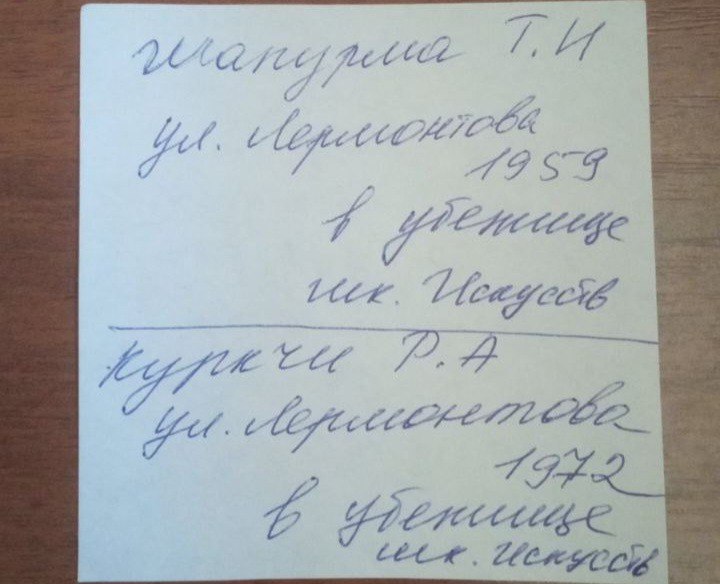 Шапурма Т.И
ул. Лермонтова
1959
в убежище
шк. Искусств
Куркчи Р.А
ул. Лермонтова
1972
в убежище
шк. Искусств